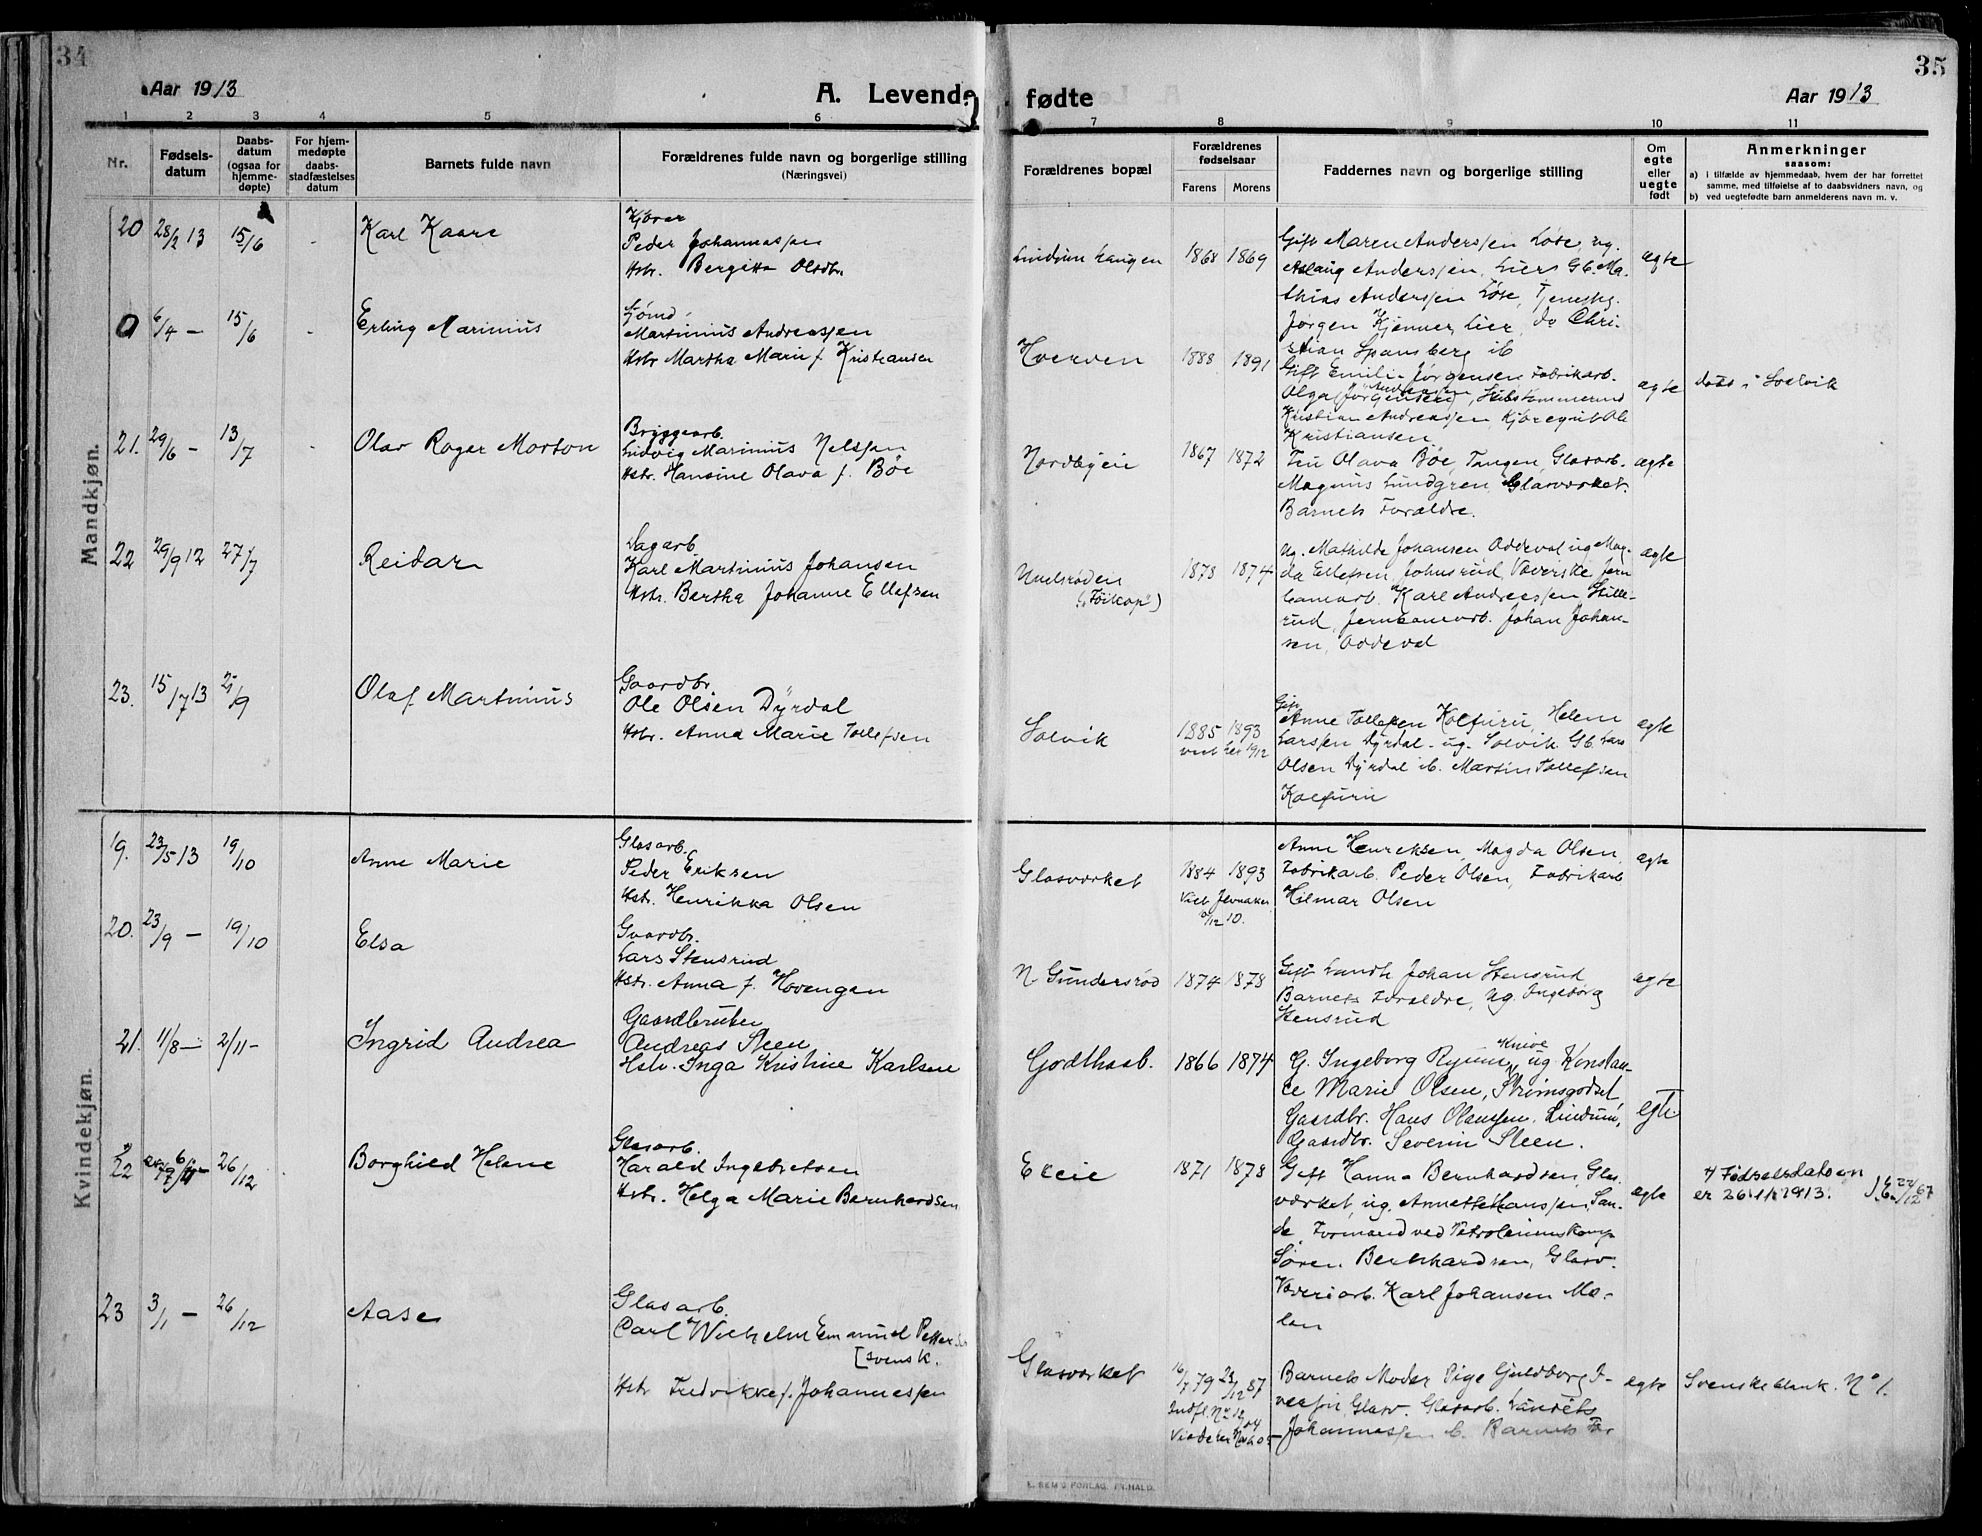 34
35
Aar 1913
A. Levende fødte
Aar 1913
1 2 3 4 5 6 7 8 9 10 11
Nr.
Fødsels-
datum
Daabs-
datum
(ogsaa for
hjemme-
døpte)
For hjem-
medøpte
daabs-
stadfæstelses
datum
Barnets fulde navn
Forældrenes fulde navn og borgerlige stilling
(Næringsvei)
Forældrenes bopæl
Forældrenes
fødselsaar
Farens Morens
Faddernes navn og borgerlige stilling
Om
egte
eller
uegte
født
Anmerkninger
saasom:
a) i tilfælde av hjemmedaab, hvem der har forrettet
samme, med tilføielse af to daabsvidners navn, og
b) ved uegtefødte barn anmelderens navn m. v.
Mandkjøn.
20 28/2 13 15/6 - Karl Kaare
Peder Johannessen
Hstr. Bergitte Olsdtr.
1868 1869
Gift Maren Andersen Løse, ug.
Aslaug Andersen, Liers Gb. Ma-
thias Andersen Løse, Tjenestkg.
Jørgen Kjenner, Lier, do Chri-
stian Spansberg ib
ægte
0 6/4 - 15/6 - Erling Marinius
Martinius Andreassen
Hstr Martha Marie f. Kristiansen
Hverven
1888 1891
Gift Emilie Jørgensen Fabrikarb.
Kristian Andreassen Ole
Kristiansen
ægte
døbt i Solvik
21. 29/6 - 13/7 - Olav Roger Morton
Bryggearb.
Ludvig Marinius Nelssen
Hstr. Hansine Olava f. Bøe
Nordbyeie
1867 1872
Fru Olava Bøe, Tangen, Glasarb.
Magnus Lundgren, Glasværket.
Barnets Forældre.
ægte
22 29/9 12 27/7 Reidar
Sagarb.
Karl Martinius Johansen
Hstr. Bertha Johanne Ellefsen
1878 1874
ug. Mathilde Johansen Oddeval ug Mag-
da Ellefsen, Johnsrud, Væverske, Jern
banearb. Karl Andreassen Stille-
rud, Jernbanearb. Johan Johan-
sen, Oddeval
ægte
23. 15/7 13 21/9 Olaf Martinius
Gaardbr.
Ole Olsen Dyrdal
Hstr. Anna Marie Tollefsen
Solvik
1885 1893
Gift
Anne Tollefsen Kolfuru, Helene
Larssen Dyrdal - ug. Solvik Gb. Lars
Olsen Dyrdal ib. Martin Tollefsen
Kolfuru
ægte
Kvindekjøn.
19. 23/5 13 19/10 Anne Marie
Glasarb.
Peder Eriksen
Hstr. Henrikka Olsen
Glasværket
1884 1893
Viet Jevnaker
/12 10.
Anne Henriksen, Magda Olsen,
Fabrikarb. Peder Olsen, Fabrikarb
Hilmar Olsen
ægte
20. 23/9 - 19/10 Elsa
Gaardbr.
Lars Stensrud
Hstr. Anna f. Hovengen
N. Gundersrød
1874 1878
Gift Landh. Johan Stensrud
Barnets Forældre, ug. Ingeborg
Stensrud
ægte
21. 11/8 - 2/11 - Ingrid Andrea
Gaardbruker
Andreas Steen
Hstr. Inga Kristine Karlsen
Godthaab.
1866 1874
G. Ingeborg ug. Konstan-
ce Marie Olsen, Strømsgodset,
Gaardbr. Hans Olaussen. Lindum,
Gaardbr. Severin Steen.
egte
22 26/12 Borghild Helene
Glasarb.
Harald Ingebretsen
Hstr. Helga Marie Bernhardsen
Eleie
1871 1878
Gift Hanna Bernhardsen, Glas-
værket, ug. Annette Hanssen, San-
de, Formand ved Petroleumskomp
Søren Bernhardsen, Glasv.
Væveriarb. Karl Johansen Mo-
len
ægte
Fødselsdatoen
er 26/11 1913.
23 3/1 - 26/12 Aase
Glasarb.
Carl Wilhelm Emanuel Petter
[svensk.
Hstr Fredrikke f. Johannessen
Glasværket
16/7 79 23/12 87
Barnets Moder Pige Guldborg I-
versen Glasv. Glasarb.
Johannessen ib. Barnets Far
ægte
Svenske blank. No 1.
E. SEM'S FORLAG, FR.HALD.